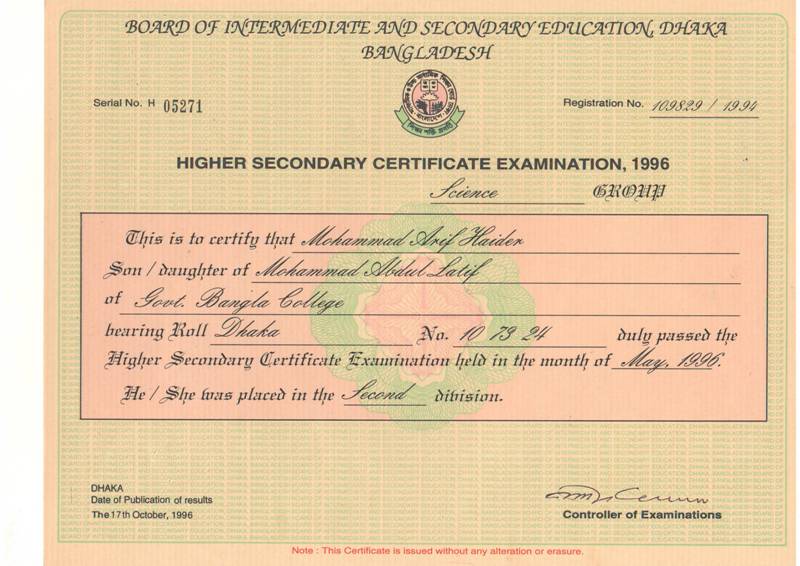 BOARD OF INTERMEDIATE AND SECONDARY EDUCATION, DHAKA
BANGLADESH
Serial No. H 05271
Registration No. 109829 / 1994
HIGHER SECONDARY CERTIFICATE EXAMINATION, 1996
Science GROUP
This is to certify that Mohammad Arif Haider
Son / daughter of Mohammad Abdul Latif
of Govt. Bangla College
bearing Roll Dhaka No. 10 73 24 duly passed the
Higher Secondary Certificate Examination held in the month of May, 1996.
He / She was placed in the Second division.
DHAKA
Date of Publication of results
The 17th October, 1996
Controller of Examinations
Note : This Certificate is issued without any alteration or erasure.